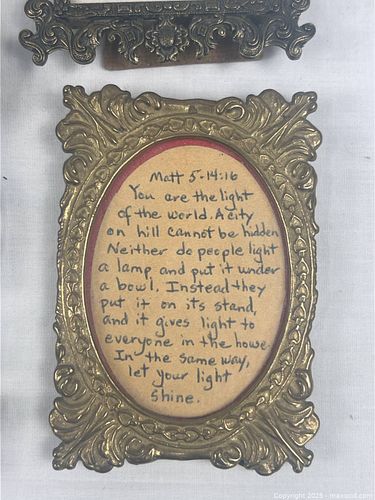 Matt 5-14:16
You are the light
of the world. A city
on hill cannot be hidden
Neither do people light
a lamp and put it under
a bowl. Instead they
put it on its stand,
and it gives light to
everyone in the house.
In the same way,
let your light
shine.
Copyright 2025 - maxsold.com